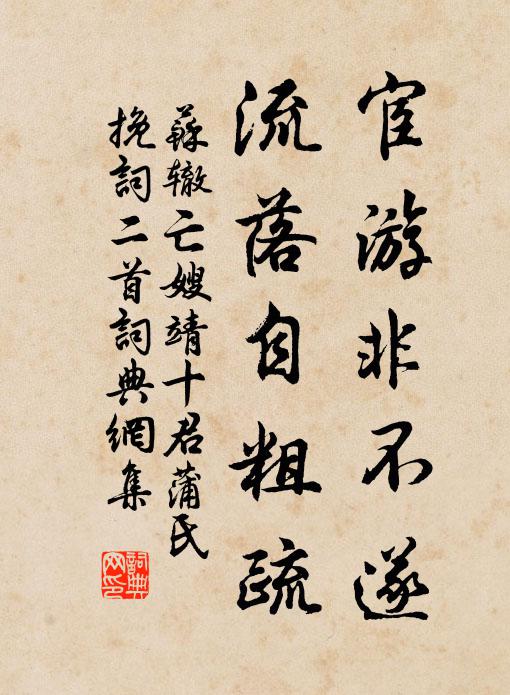 宦游非不遂
流落自粗疏
蘇辙亡嫂靖十君蒲氏
挽詞二首詞典網集
詞典
网印